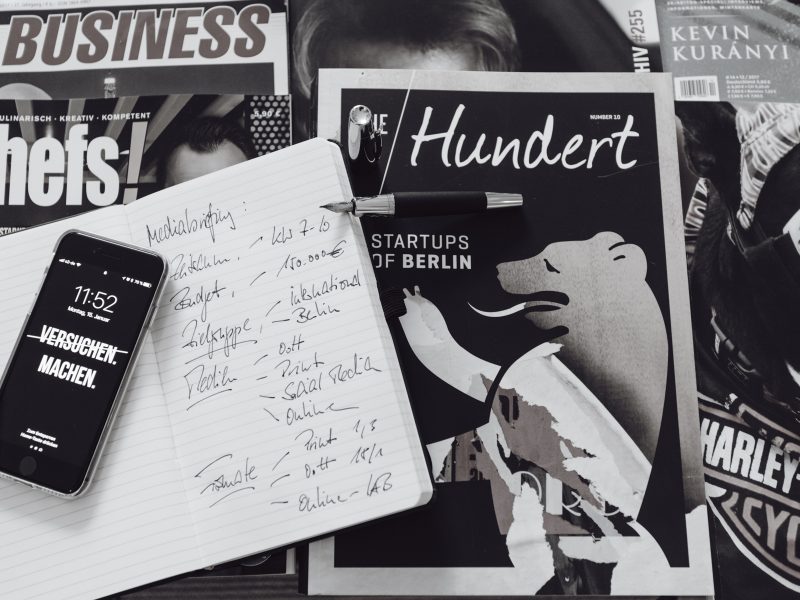 BUSINESS
KULINARISCH • KREATIV • KOMPETENT
5,90 €
hefs!
HIV #255
KEVIN
KURÁNYI
NUMBER 10
Hundert
STARTUPS
OF BERLIN
HARLEY-
CYC
11:52
Montag, 15. Januar
VERSUCHEN.
MACHEN.
Mediabriefing:
Zeitschn. – KW 7-10
Budget, – 150.000€
Zielgruppe, – International
– Berlin
Medien – OoH
– Print
– Social Media
– Online
Formate – Print 1/3
– OoH 18/1
– Online – LAB